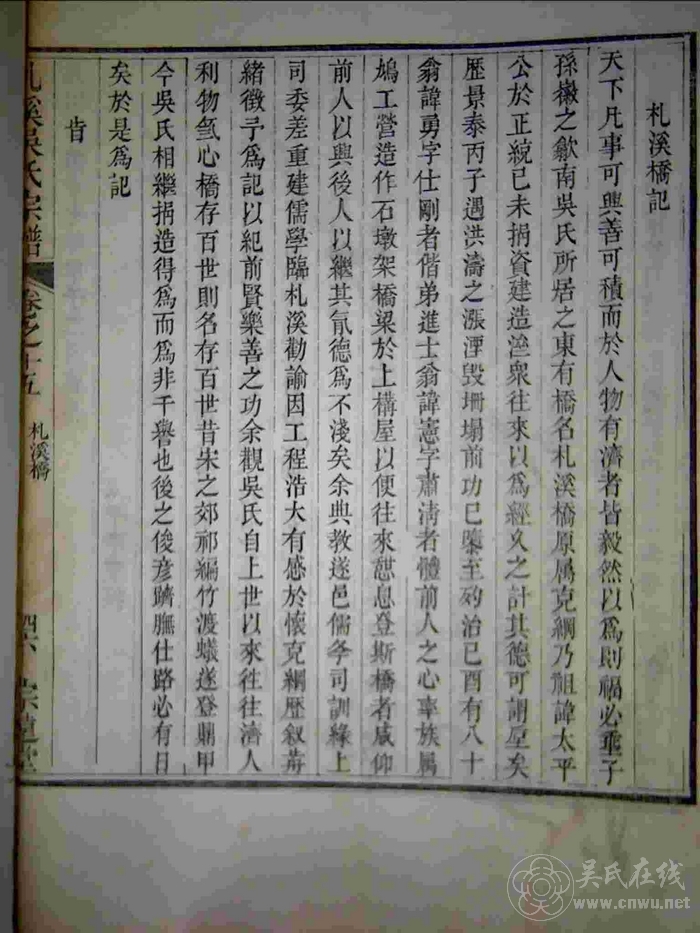 札溪橋記
天下凡事可興善可積而於人物有濟者皆毅然以為則福必垂子
孫㠫之歙南吳氏所居之東有橋名札溪橋原属克綱乃祖諱太平
公於正統己未捐資建造濟衆往來以為經久之計其德可謂厚矣
歷景泰丙子遇洪濤之漲湮毀坍塌前功已隳至弘治己酉有八十
翁諱勇字仕剛者偕弟進士翁諱憲字肅清者體前人之心率族属
鳩工營造作石墩架橋梁於上構屋以便往來憇息登斯橋者咸仰
前人以興後人以繼其氘德為不淺矣余典教遂邑儒學司訓緣上
司委差重建儒學臨札溪勸諭因工程浩大有感於懷克綱歷叙
緒徵予為記以紀前賢樂善之功余觀吳氏自上世以來徃徃濟人
利物氬心橋存百世則名存百世昔宋之郊祁編竹渡蟻遂登鼎甲
今吳氏相繼捐造得為而為非干譽也後之俊彦躋膴仕路必有日
矣於是為記
旹
札溪吳氏宗譜
卷之十五
札溪橋
四六
宗遠堂
吴氏在线
www.cnwu.net